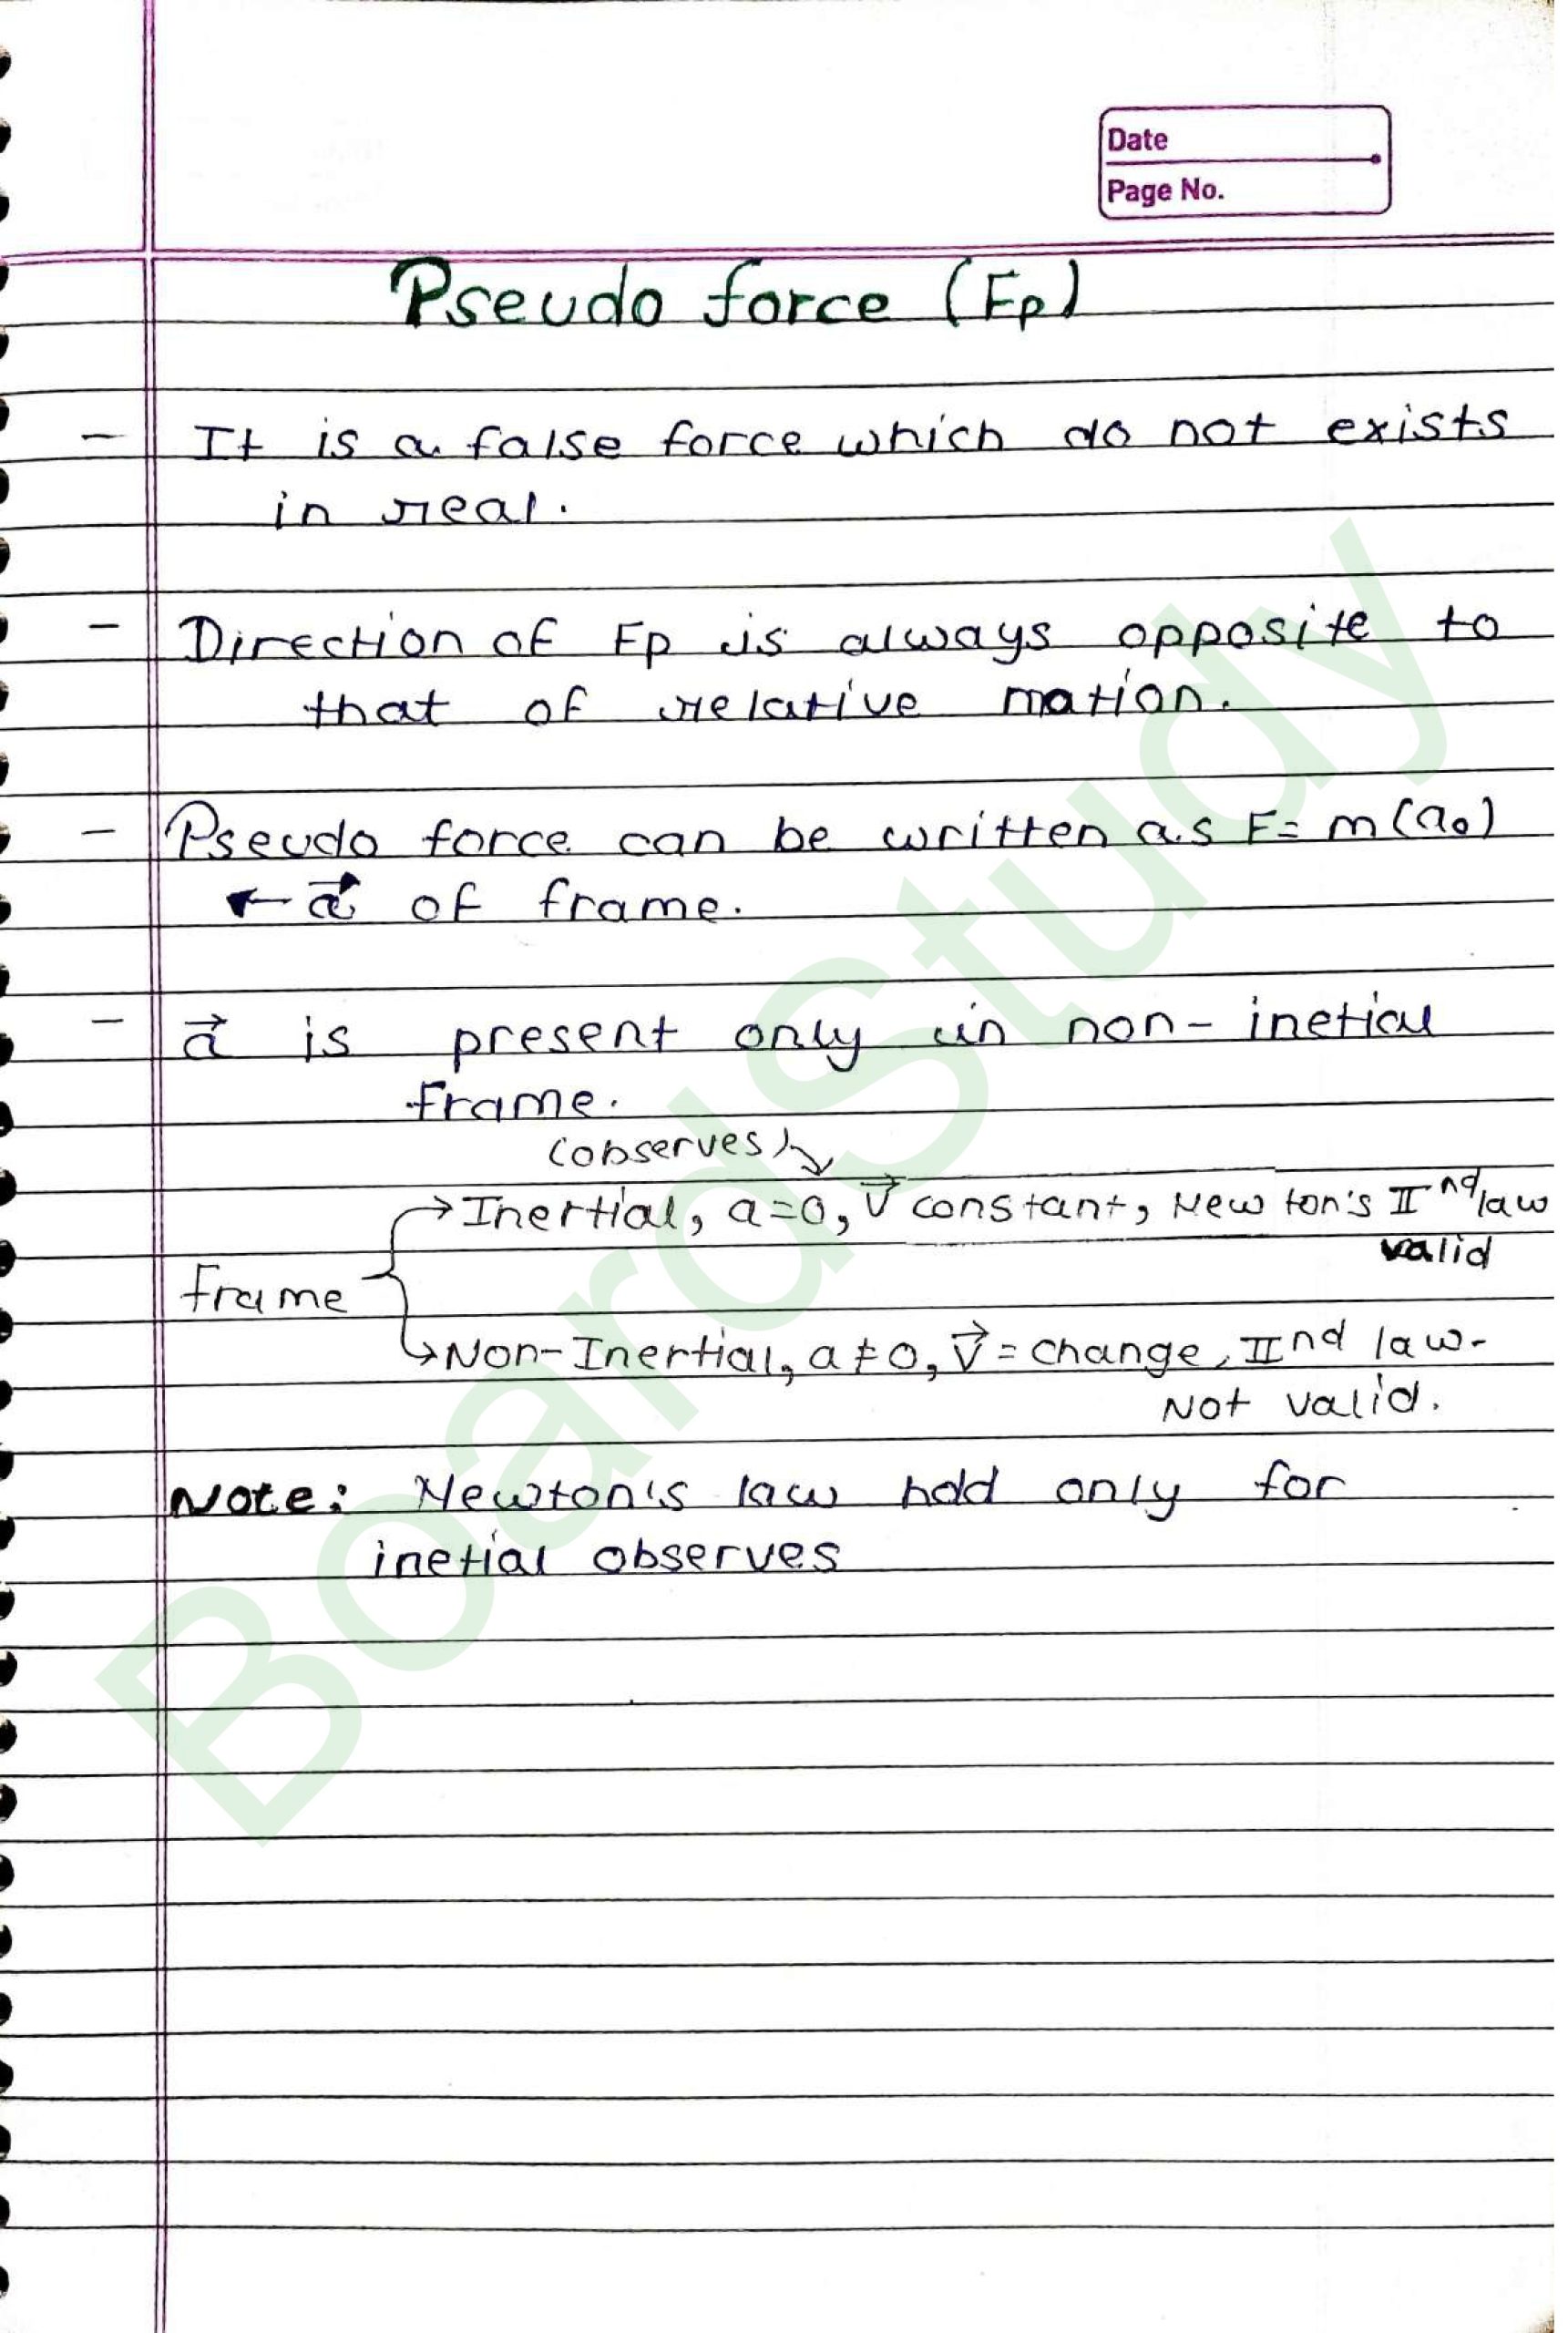 Date
Page No.
Pseudo force (Fp)
- It is a false force which do not exists
in real.
- Direction of Fp is always opposite to
that of relative motion.
- Pseudo force can be written as F= m(a₀)
← a⃗ of frame.
- a⃗ is present only in non-inetial
frame.
(observes)
→ Inertial, a=0, v⃗ constant, Newton's IIⁿᵈ law
valid
Frame
↳ Non-Inertial, a≠0, v⃗ = change, IInd law-
Not valid.
Note: Newton's law hold only for
inetial observes
BoardStudy